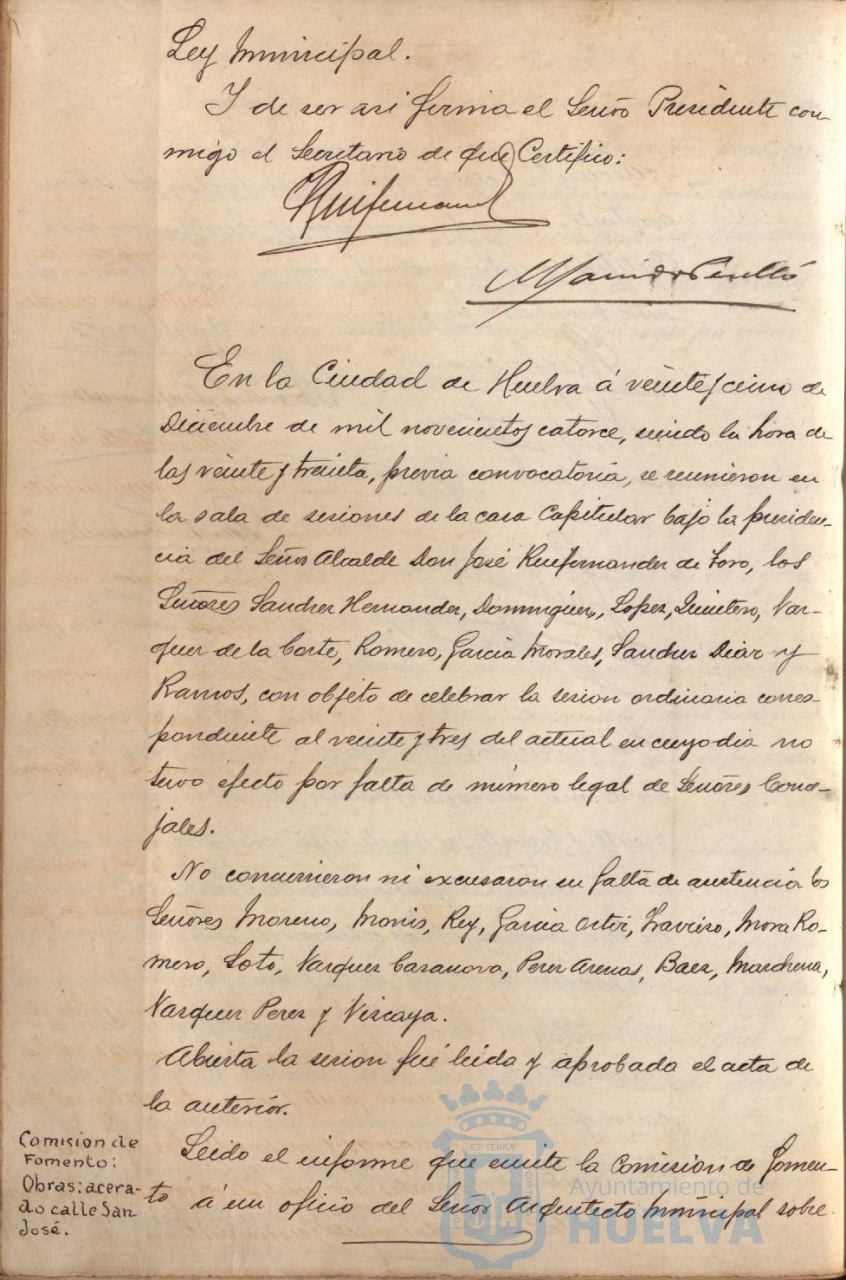 Ley Municipal.
Y de ser asi firma el Señor Presidente con-
migo el Secretario de que Certifico:
En la Ciudad de Huelva á veinte y cinco de
Diciembre de mil novecientos catorce, siendo la hora de
las veinte y treinta, previa convocatoria, se reunieron en
la sala de sesiones de la casa Capitular bajo la presiden-
cia del Señor Alcalde Don José Ruifernandez de Toro, los
Señores Sanchez Hernandez, Dominguez, Lopez, Quintero, Vaz-
quez de la Corte, Romero, Garcia Morales, Sanchez Diaz y
Ramos, con objeto de celebrar la sesion ordinaria corres
pondiente al veinte y tres del actual en cuyo dia no
tuvo efecto por falta de número legal de Señores Conce-
jales.
No concurrieron ni excusaron su falta de asistencia los
Señores Moreno, Monis, Rey, Garcia Ortiz, Mora Ro-
mero, Soto, Vazquez Casanova, Perez Arenas, Baez, Marchena,
Vazquez Perez y Vizcaya.
Abierta la sesion fué leida y aprobada el acta de
la anterior.
Comision de
Fomento:
Obras: acera-
do calle San
José.
Leido el informe que emite la Comision de Fomen-
to á un oficio del Señor Arquitecto Municipal sobre
Ayuntamiento de
HUELVA